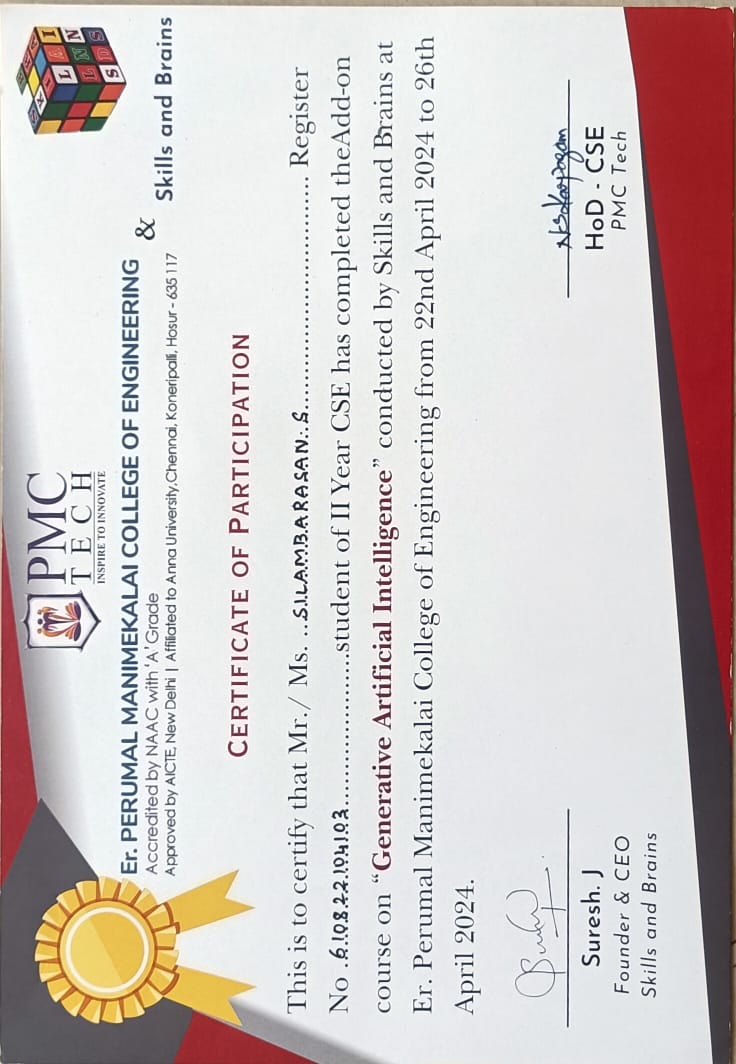 PMC
TECH
INSPIRE TO INNOVATE
Er. PERUMAL MANIMEKALAI COLLEGE OF ENGINEERING
Accredited by NAAC with 'A' Grade
Approved by AICTE, New Delhi | Affiliated to Anna University,Chennai, Koneripalli, Hosur - 635 117
&
Skills and Brains
CERTIFICATE OF PARTICIPATION
This is to certify that Mr./ Ms. ..SILAMBARASAN. S................................ Register
No .610822104103.....................student of II Year CSE has completed theAdd-on
course on “Generative Artificial Intelligence” conducted by Skills and Brains at
Er. Perumal Manimekalai College of Engineering from 22nd April 2024 to 26th
April 2024.
Suresh. J
Founder & CEO
Skills and Brains
HoD - CSE
PMC Tech